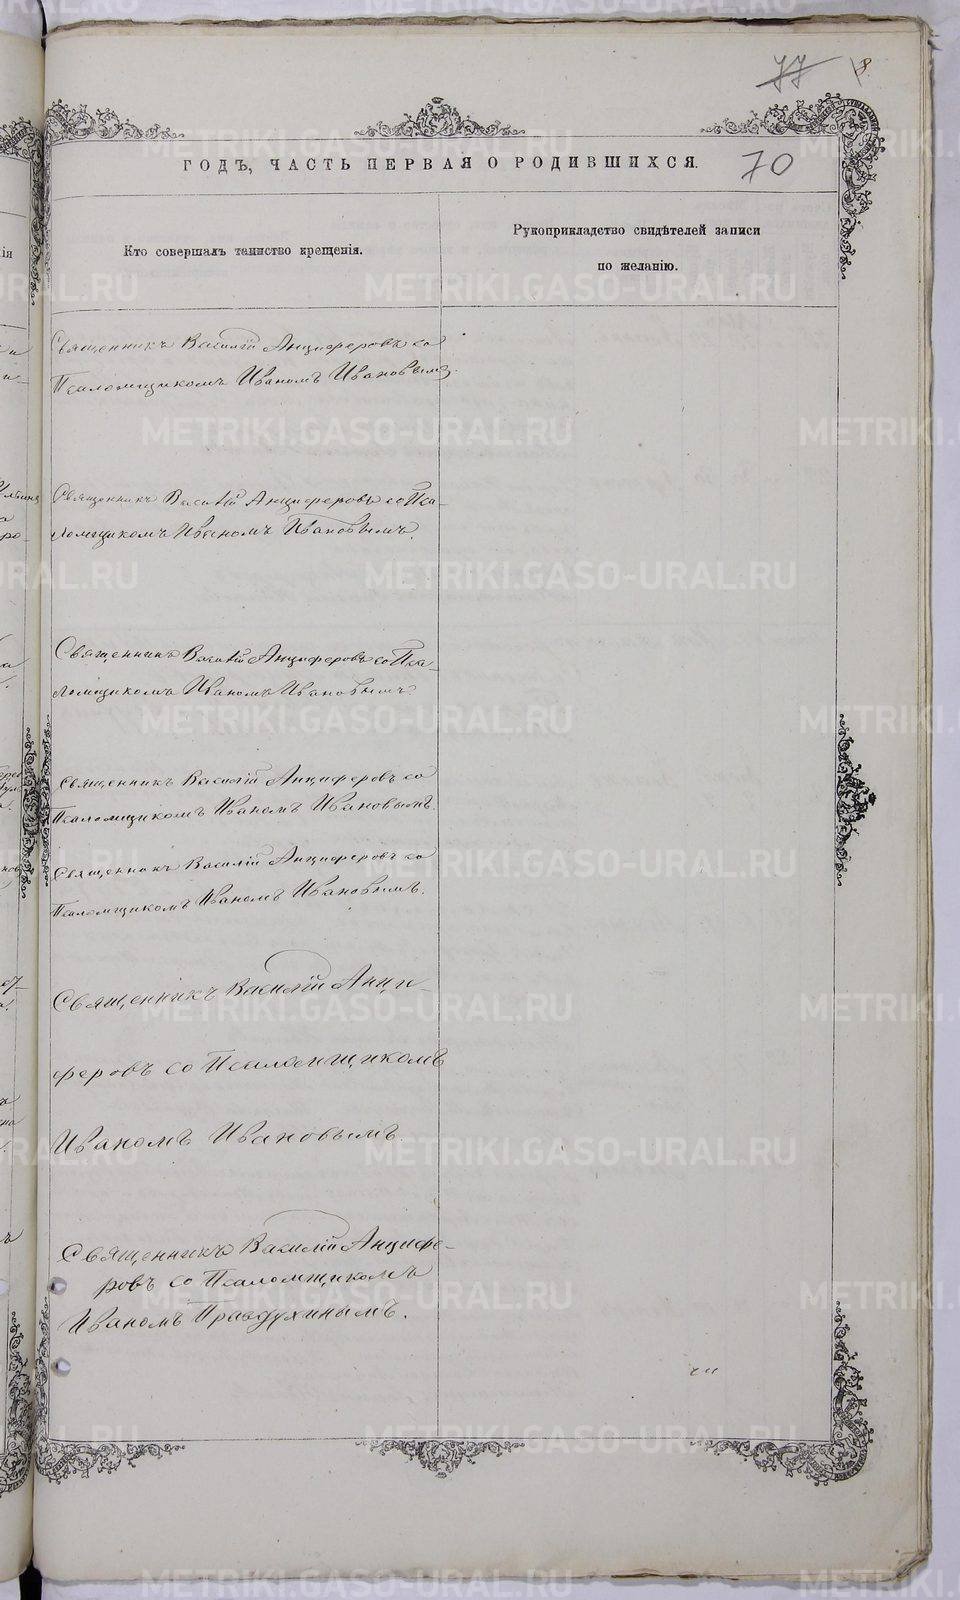 77 8
ГОДЪ, ЧАСТЬ ПЕРВАЯ О РОДИВШИХСЯ. 70
Кто совершалъ таинство крещенія.
Рукоприкладство свидѣтелей записи
по желанію.
Священникъ Василій Анциферовъ со
Псаломщикомъ Иваномъ Ивановымъ.
Священникъ Василій Анциферовъ со Пса-
ломщикомъ Иваномъ Ивановымъ.
Священникъ Василій Анциферовъ со Пса-
ломщикомъ Иваномъ Ивановымъ.
Священникъ Василій Анциферовъ со
Псаломщикомъ Иваномъ Ивановымъ.
Священникъ Василій Анциферовъ со
Псаломщикомъ Иваномъ Ивановымъ.
Священникъ Василій Анци-
феровъ со Псаломщикомъ
Иваномъ Ивановымъ.
Священникъ Василій Анцифе-
ровъ со Псаломщикомъ
Иваномъ Правдухинымъ.
METRIKI.GASO-URAL.RU